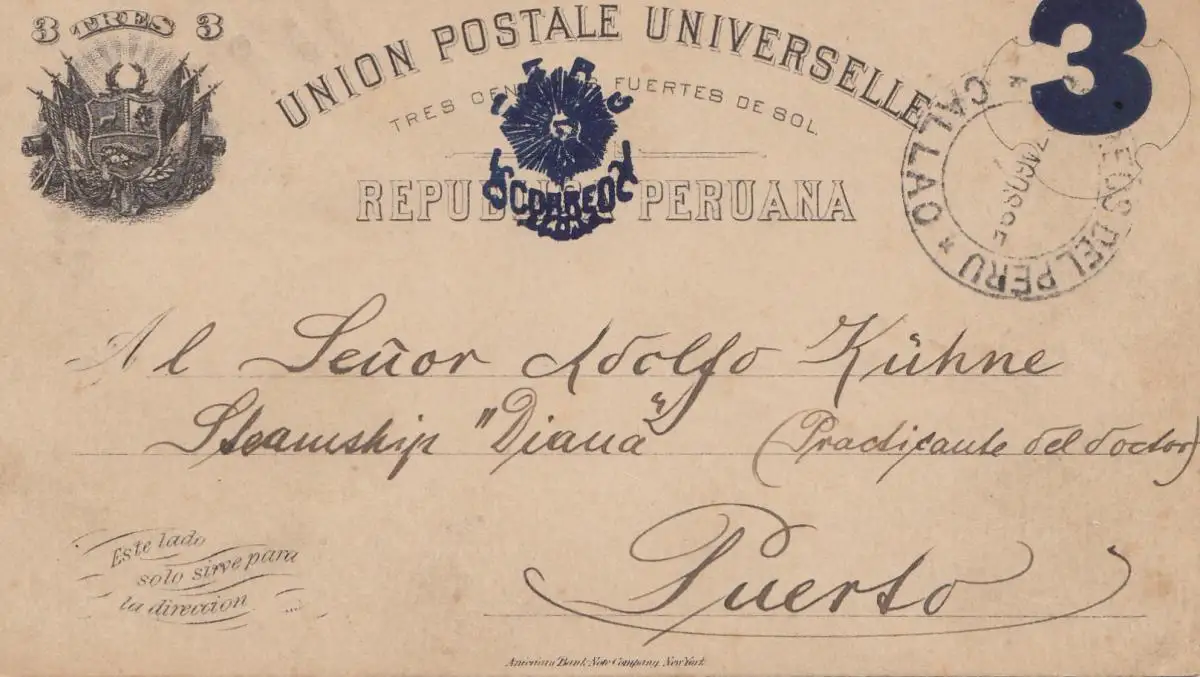 3 TRES 3
UNION POSTALE UNIVERSELLE
3
TRES CEN FUERTES DE SOL.
REPU PERUANA
CORREOS
LIMA
CALLAO
DEL PERU
Al Señor Adolfo Kühne
Steamship "Diana" (Practicante del doctor)
Puerto
Este lado
solo sirve para
la direccion
American Bank Note Company, New York